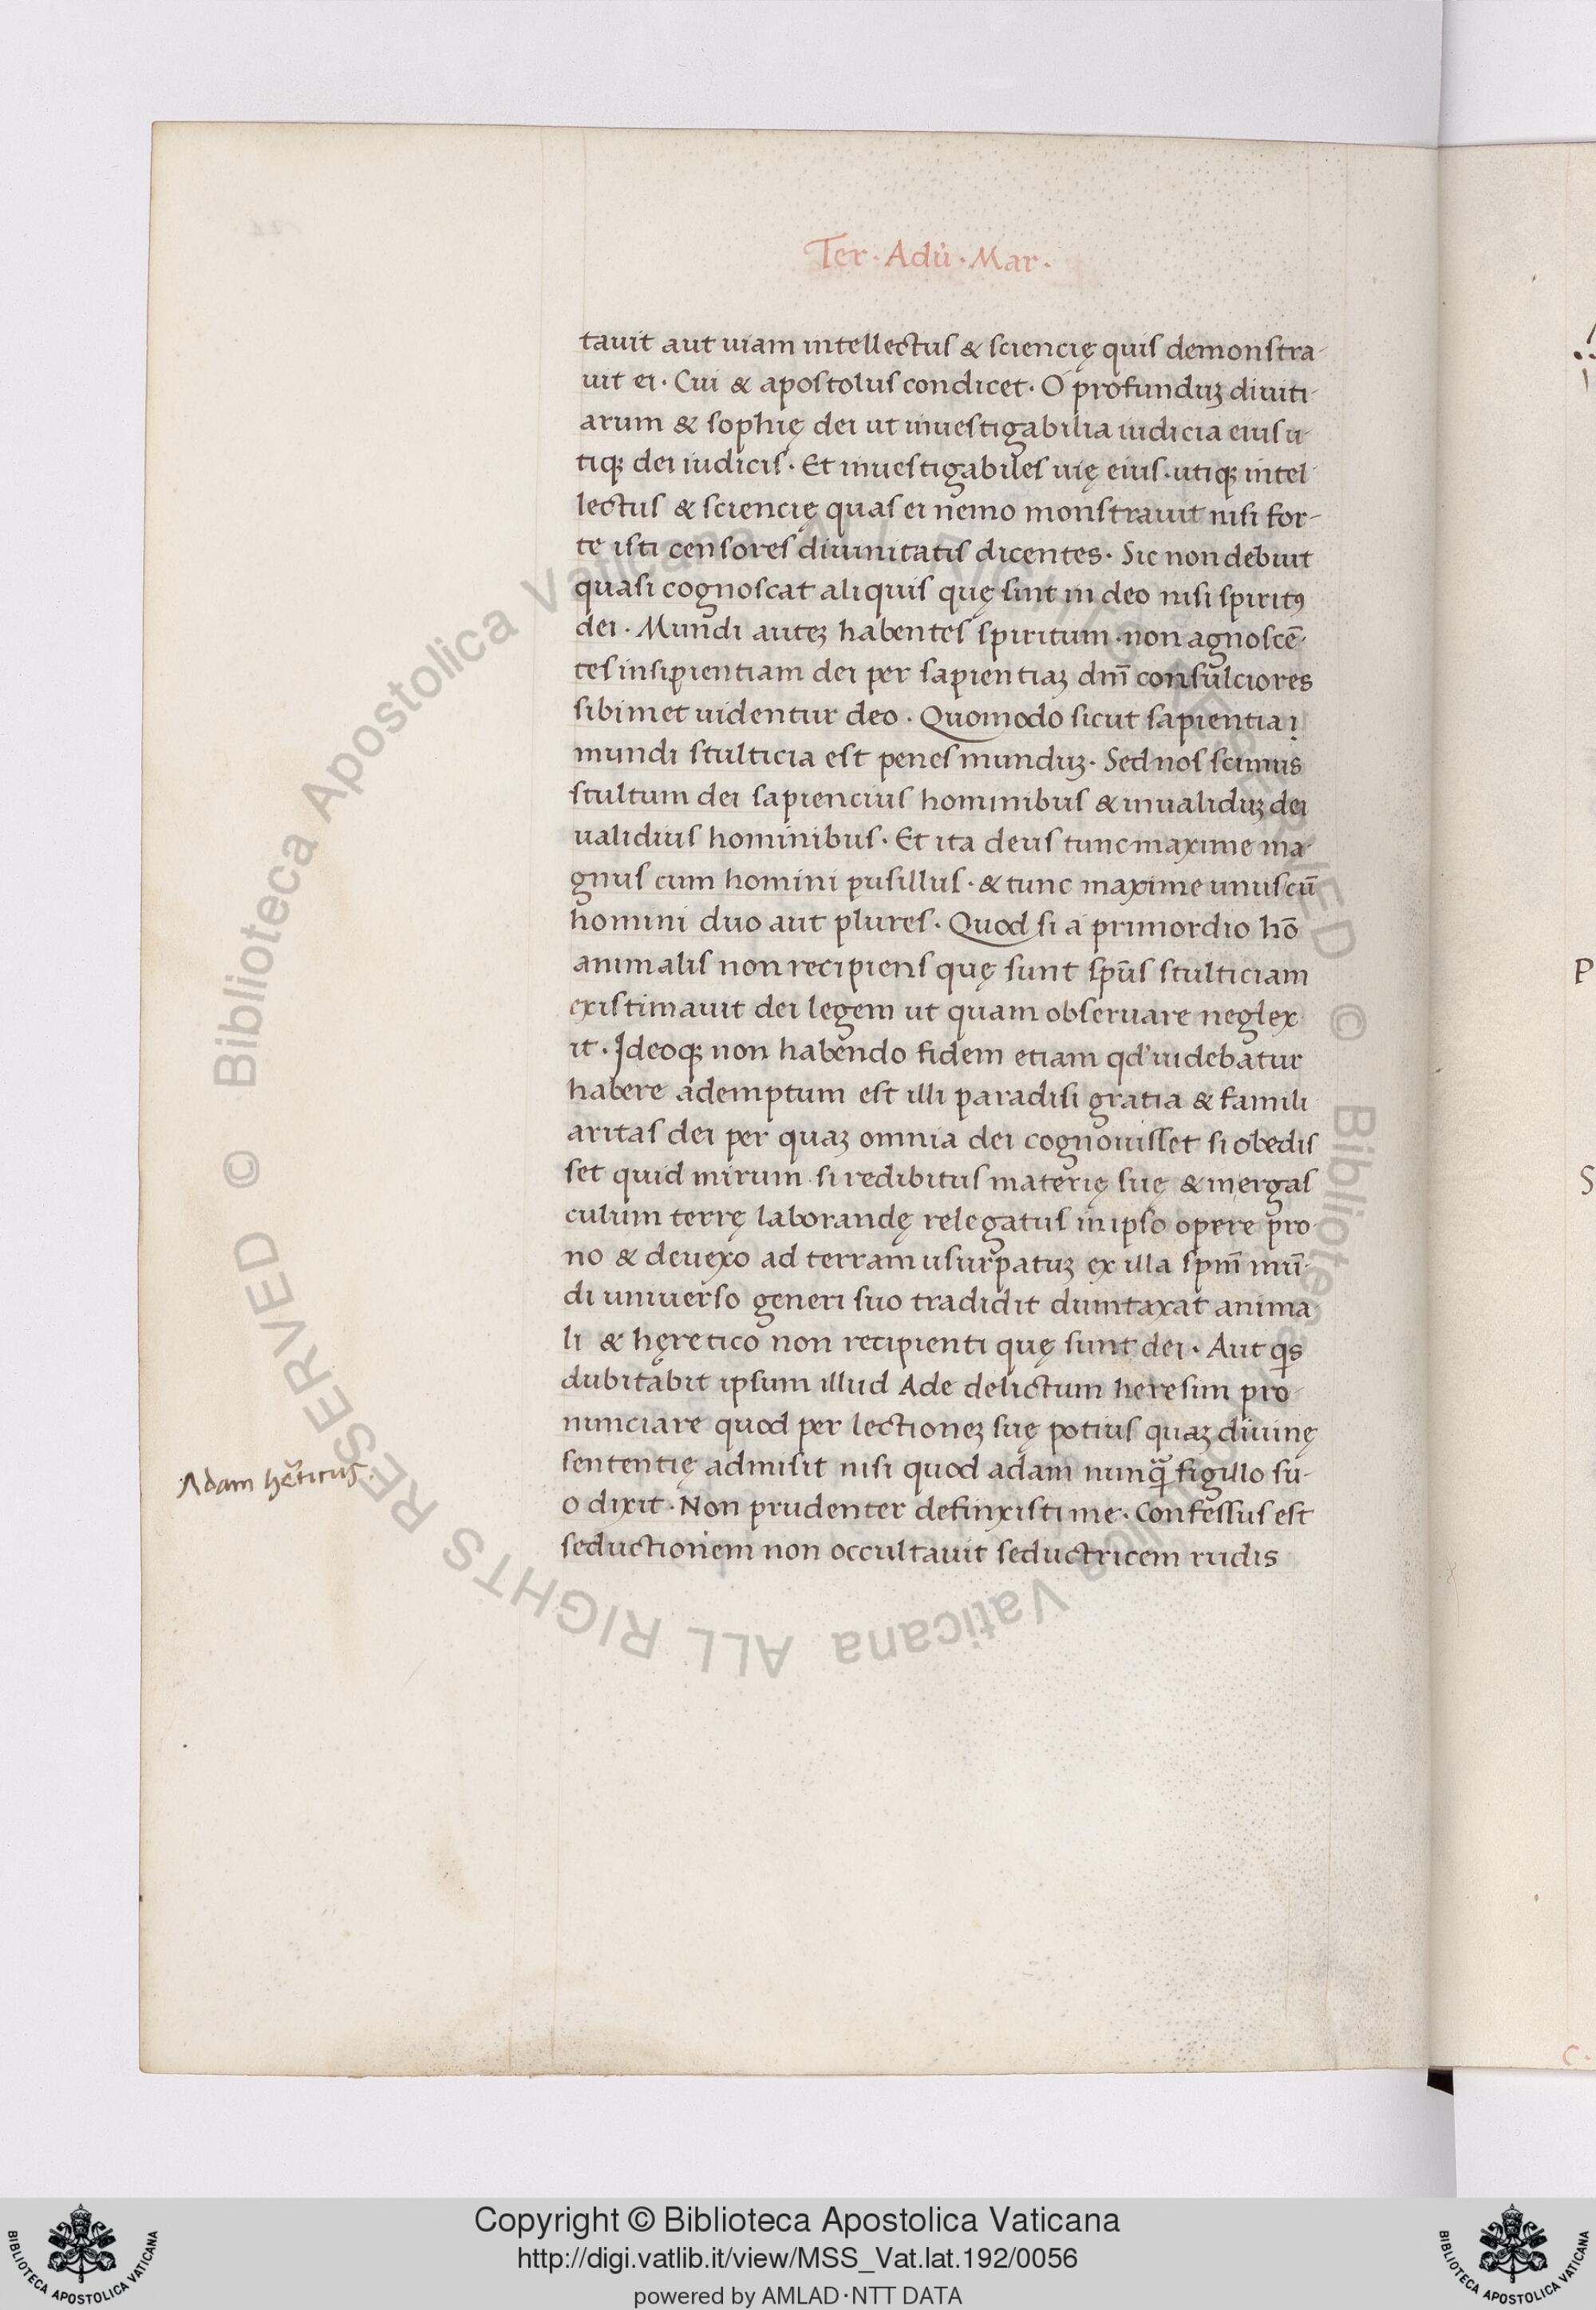 Ter · Adũ · Mar ·
tauit aut uiam intellectus & sciencię quis demonstra-
uit ei · Cui & apostolus condicet · O profunduꝫ diuiti-
arum & sophię dei ut inuestigabilia iudicia eius u-
tiqꝫ dei iudicis · Et inuestigabiles uię eius · utiqꝫ intel-
lectus & sciencię quas ei nemo monstrauit nisi for-
te isti censores diuinitatis dicentes · Sic non debuit
quasi cognoscat aliquis quę sint in deo nisi spiritꝰ
dei · Mundi auteꝫ habentes spiritum · non agnoscē-
tes insipientiam dei per sapientiaꝫ dm̄ consulciores
sibimet uidentur deo · Quomodo sicut sapientia i
mundi stulticia est penes munduꝫ · Sed nos scimus
stultum dei sapiencius hominibus & inualiduꝫ dei
ualidius hominibus · Et ita deus tunc maxime ma-
gnus cum homini pusillus · & tunc maxime unus cū
homini duo aut plures · Quod si a primordio hō
animalis non recipiens quę sunt spūs stulticiam
existimauit dei legem ut quam obseruare neglex-
it · Ideoqꝫ non habendo fidem etiam qd' uidebatur
habere ademptum est illi paradisi gratia & famili
aritas dei per quaꝫ omnia dei cognouisset si obedis
set quid mirum si redibitus materię suę & inergas
culum terrę laborandę relegatus in ipso opere pro-
no & deuexo ad terram usurpatuꝫ ex illa spm̄ mū-
di uniuerso generi suo tradidit dumtaxat anima
li & hęretico non recipienti quę sunt dei · Aut qis
dubitabit ipsum illud Ade delictum heresim pro-
nunciare quod per lectioneꝫ suę potius quaꝫ diuinę
sententię admisit nisi quod adam nunq̄ figillo su-
o dixit · Non prudenter definxisti me · Confessus est
seductionem non occultauit seductricem rudis
Adam hēticus ·
Copyright © Biblioteca Apostolica Vaticana
http://digi.vatlib.it/view/MSS_Vat.lat.192/0056
powered by AMLAD·NTT DATA
BIBLIOTECA APOSTOLICA VATICANA
BIBLIOTECA APOSTOLICA VATICANA
Biblioteca Apostolica Vaticana ALL RIGHTS RESERVED ©